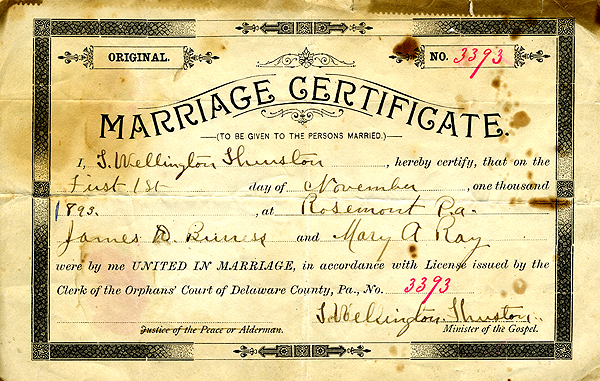 ORIGINAL. NO. 3393
MARRIAGE CERTIFICATE.
(TO BE GIVEN TO THE PERSONS MARRIED.)
I, S. Wellington Thurston, hereby certify, that on the
First 1st day of November, one thousand
1893., at Rosemont Pa.
James D. and Mary A Ray
were by me UNITED IN MARRIAGE, in accordance with License issued by the
Clerk of the Orphans' Court of Delaware County, Pa., No. 3393
S. Wellington Thurston.
Justice of the Peace or Alderman. Minister of the Gospel.